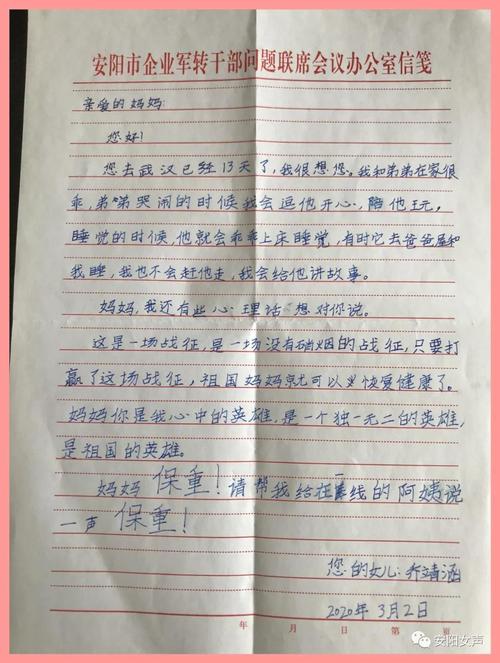 安阳市企业军转干部问题联席会议办公室信笺
亲爱的妈妈:
您好!
您去武汉已经13天了,我很想您。我和弟弟在家很
乖,弟弟哭闹的时候我会逗他开心,陪他玩。
睡觉的时候,他就会乖乖上床睡觉,有时它去爸爸屋和
我睡,我也不会赶他走,我会给他讲故事。
妈妈,我还有些心理话想对你说。
这是一场战征,是一场没有硝烟的战征,只要打
赢了这场战征,祖国妈妈就可以恢复健康了。
妈妈你是我心中的英雄,是一个独一无二的英雄,
是祖国的英雄。
妈妈保重!请帮我给在一线的阿姨说
一声保重!
您的女儿:乔靖涵
2020年3月2日
年 月 日 第 页
安阳女声